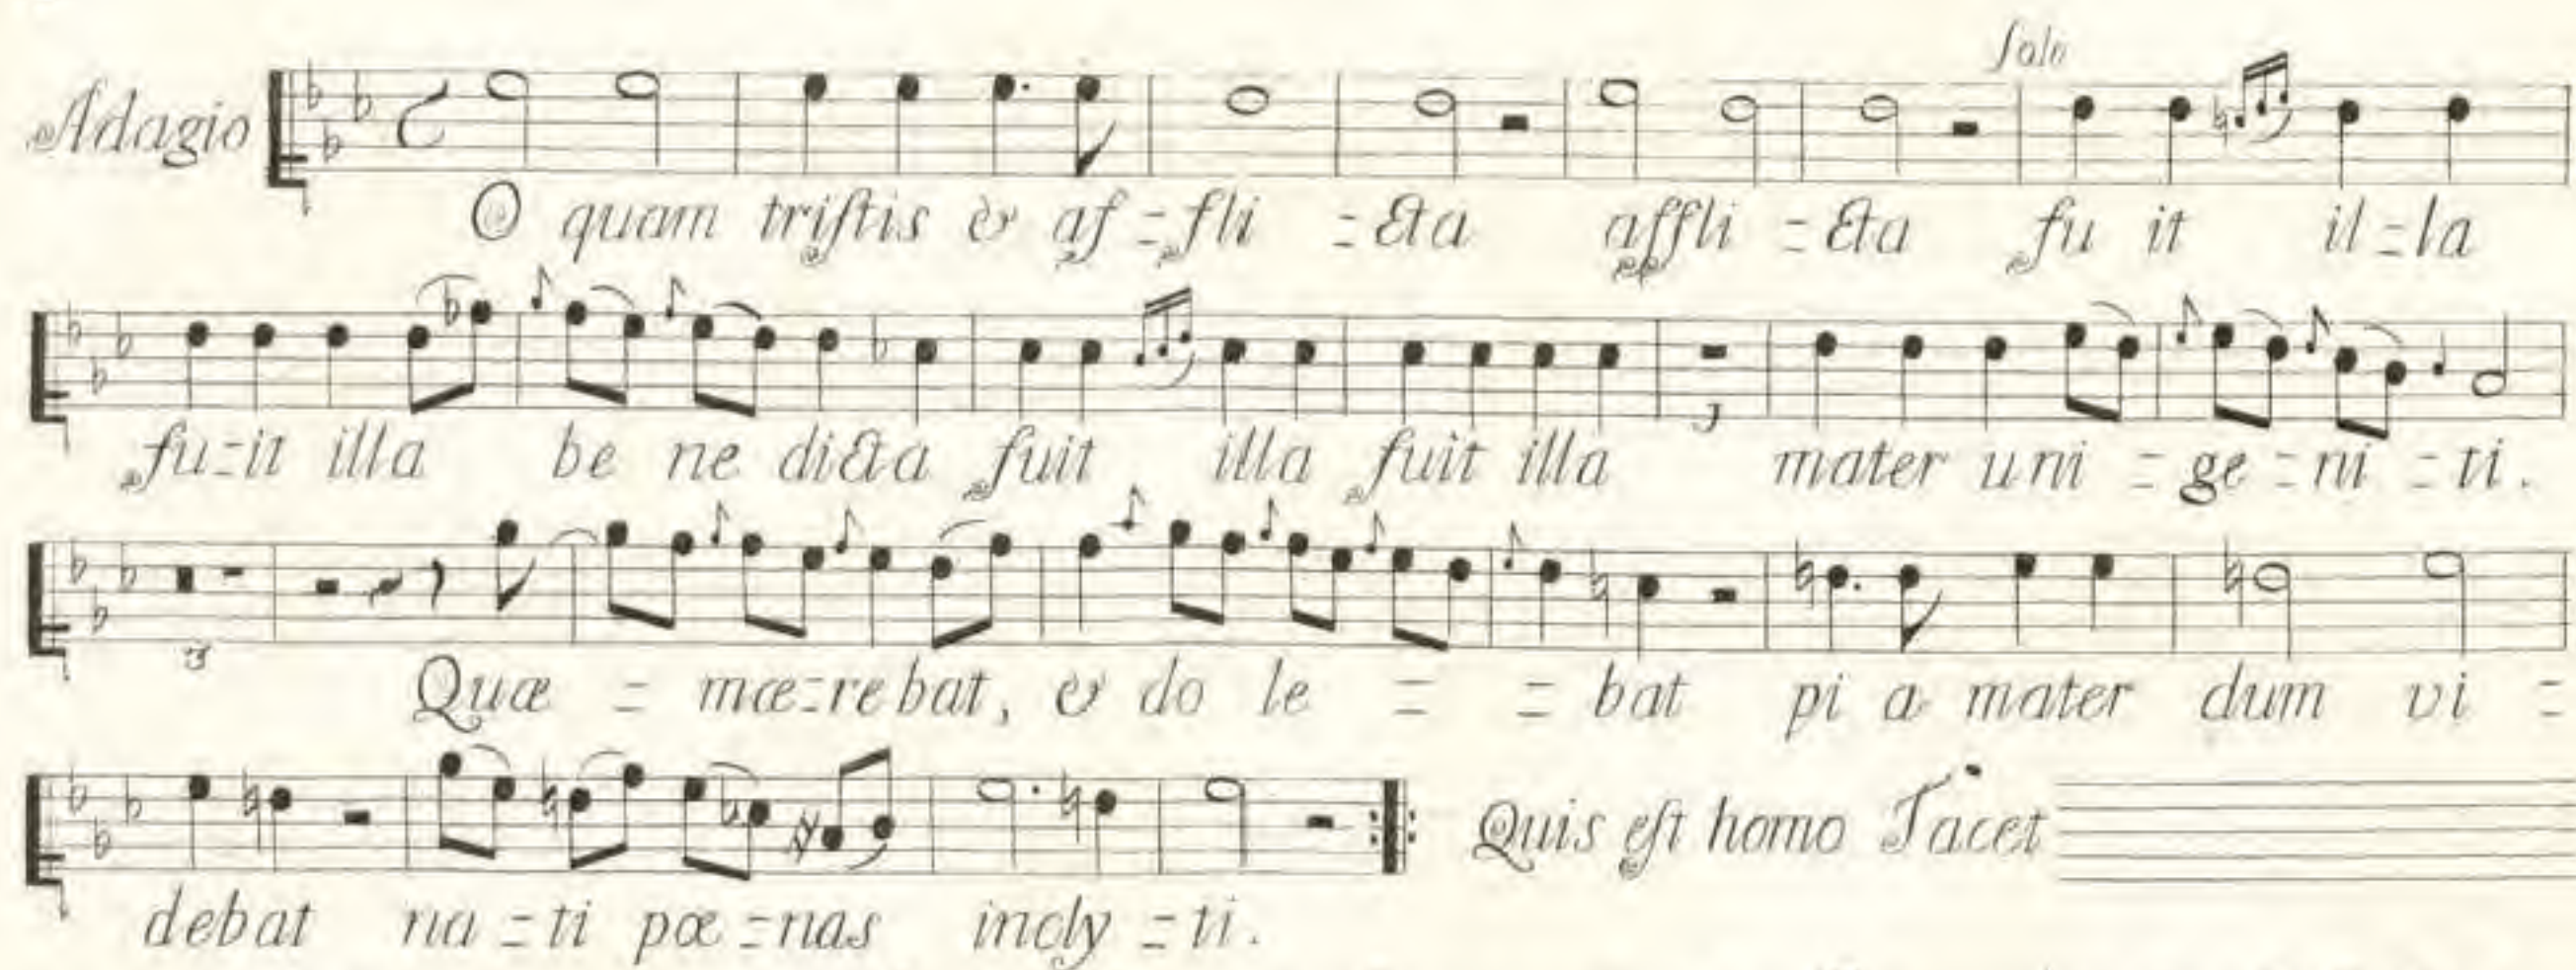 Solo
Adagio
O quam triſtis & af = fli = cta affli = cta fu it il = la
fu = it illa be ne dicta fuit illa fuit illa mater uni = ge = ni = ti.
3
Quæ = mœ = re bat, & do le = = bat pi a mater dum vi =
3
debat na = ti pœ = nas incly = ti.
Quis eſt homo Tacet